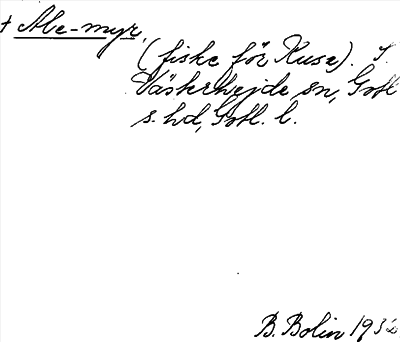 + Abe-myr,
(fiske för Rusa). I.
Västerhejde sn, Gotl
s. hd, Gotl. l.
B. Bolin 1932